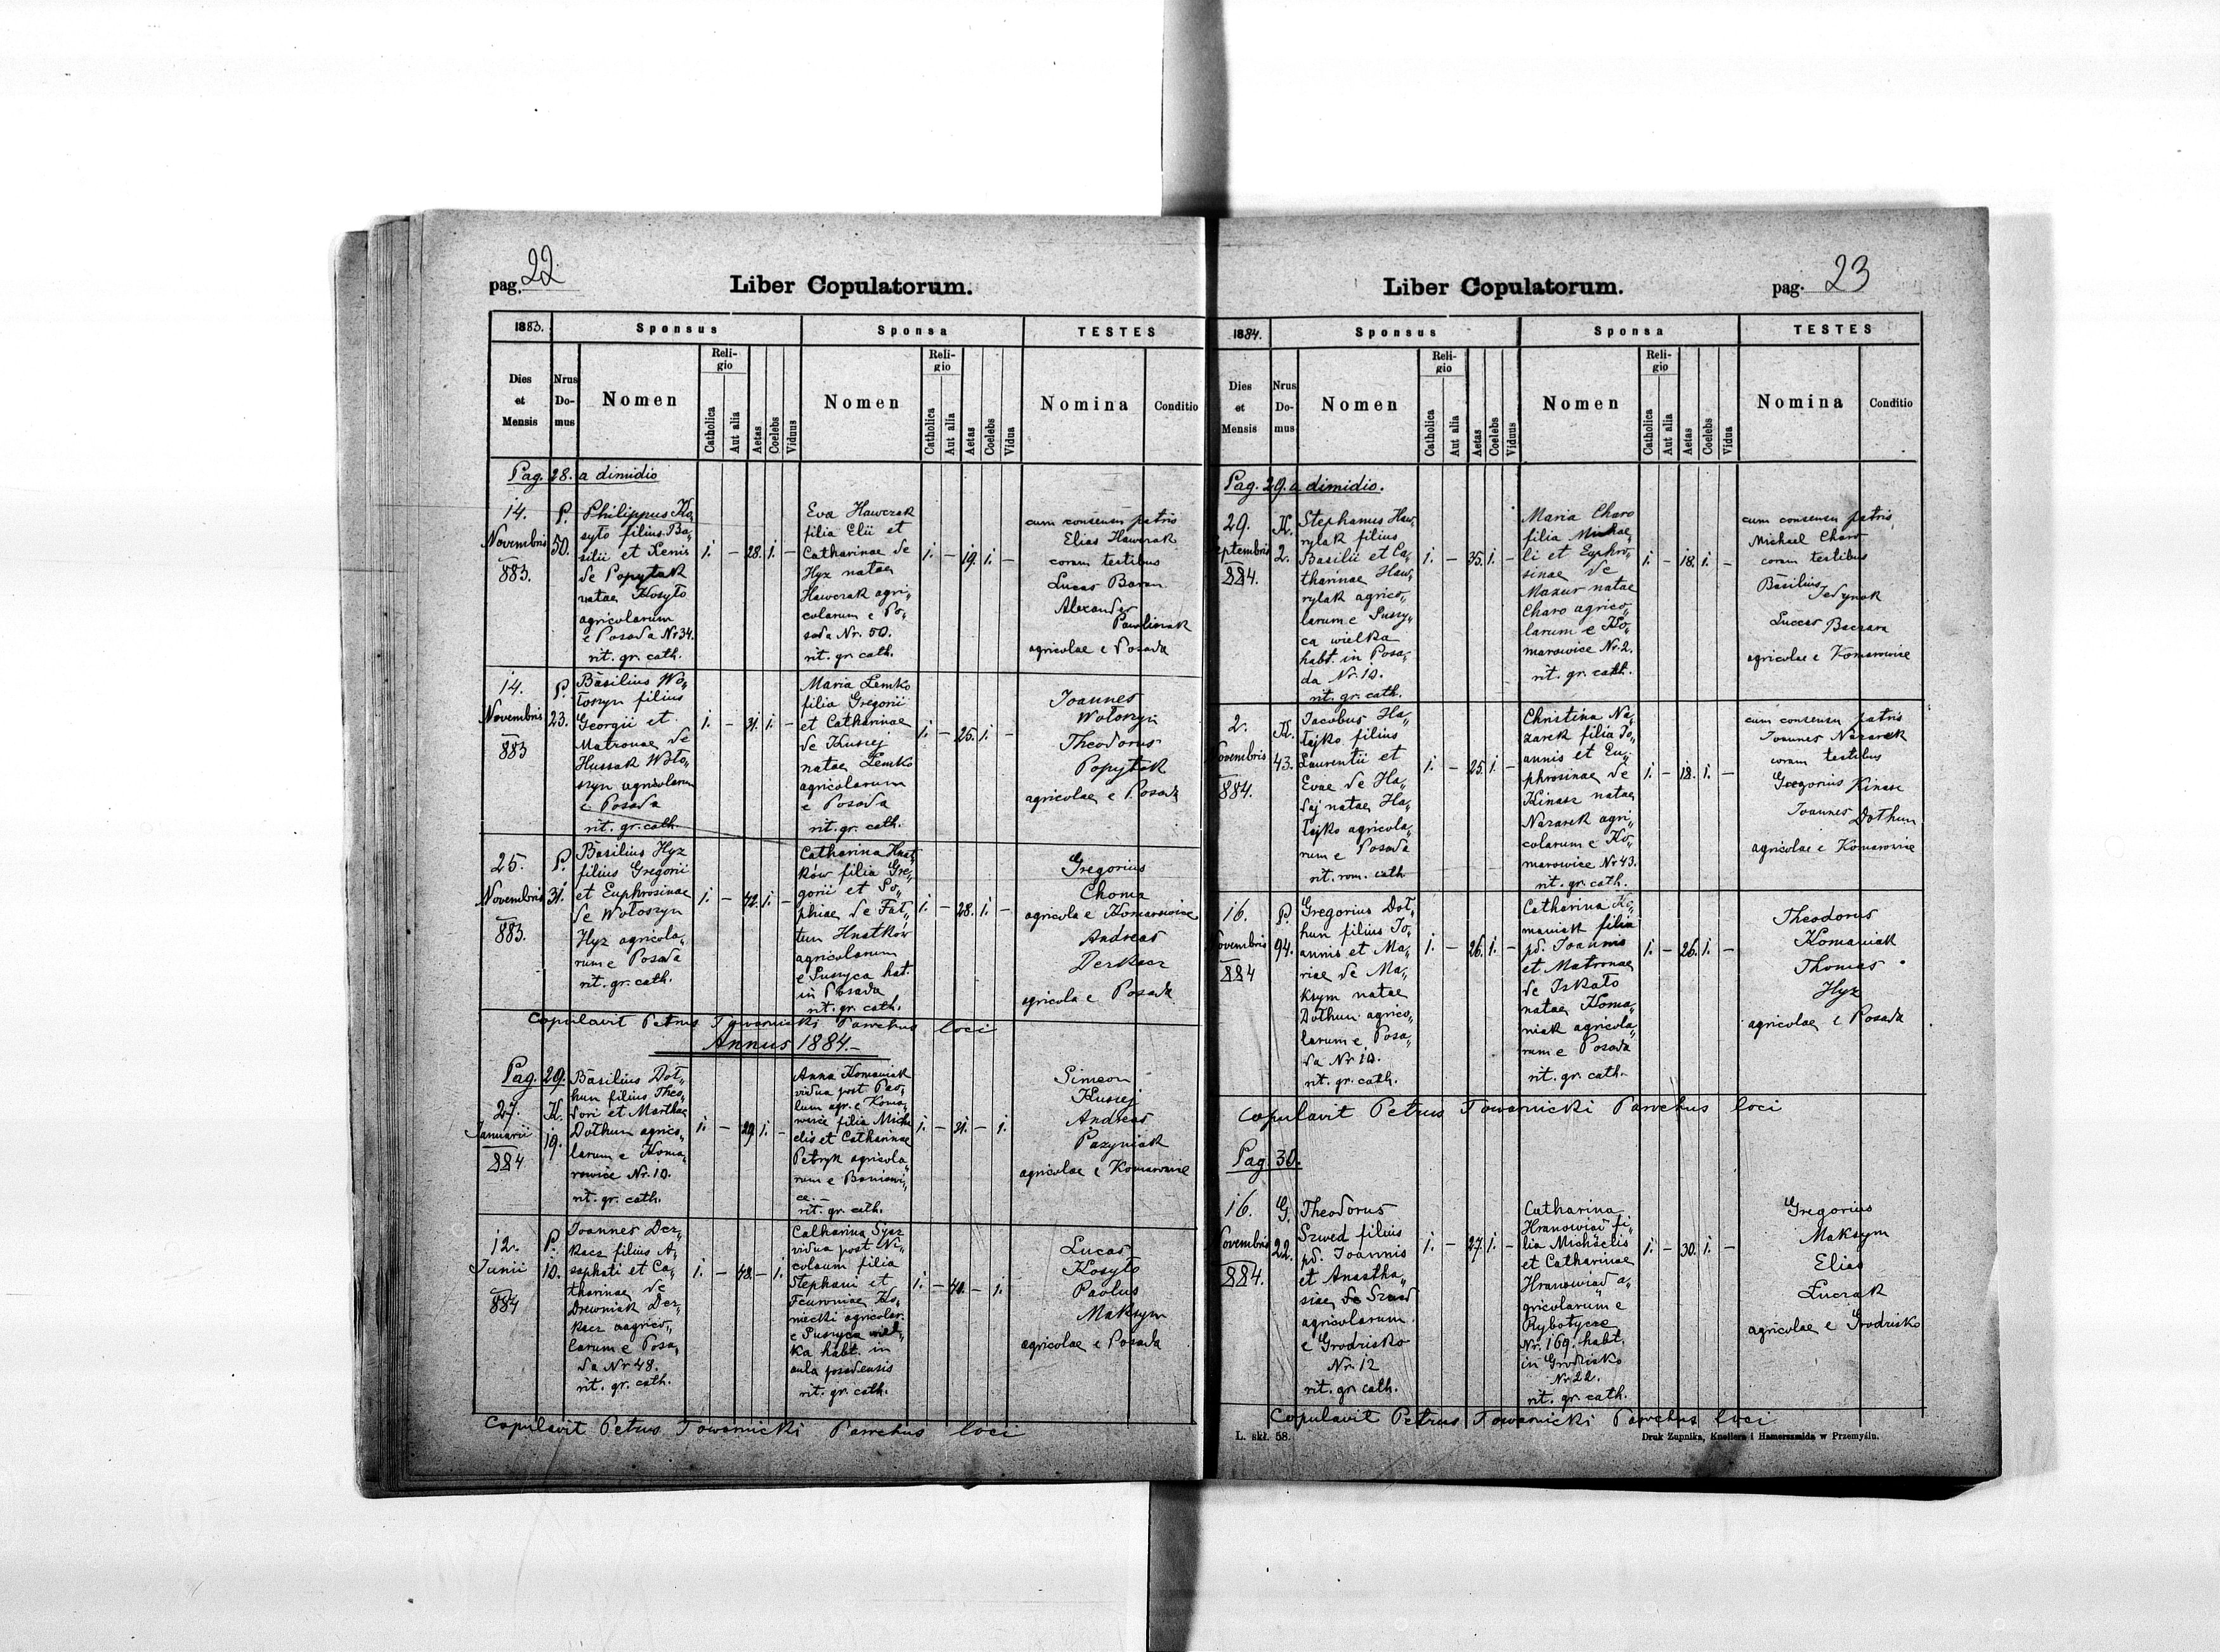 pag. 22
Liber Copulatorum.
1883.
Sponsus
Sponsa
TESTES
Dies et Mensis
Nrus Domus
Nomen
Religio
Catholica
Aut alia
Aetas
Coelebs
Viduus
Nomen
Religio
Catholica
Aut alia
Aetas
Coelebs
Vidua
Nomina
Conditio
Pag. 28. a dimidio
14.
Novembris
883.
P.
50.
Philippus Ko„
syło filius Ba„
silii et Xenis
de Popytak
natae Kosyło
agricolarum
e Posada Nr 34.
rit. gr. cath.
1. – 28. 1. –
Eva Hawczak
filia Elii et
Catharinae de
Hyz natae
Hawczak agri„
colarum e Po„
sada Nr. 50.
rit. gr. cath.
1. – 19. 1. –
cum consensu patris
Elias Hawczak
coram testibus
Lucas Baran
Alexander
Pawliszak
agricolae e Posada
14.
Novembris
883
P.
23.
Basilius Wo„
łoszyn filius
Georgii et
Matronae de
Hussak Woło„
szyn agricolarum
e Posada
rit. gr. cath.
1. – 31. 1. –
Maria Lemko
filia Gregorii
et Catharinae
de Kusiej
natae Lemko
agricolarum
e Posada
rit. gr. cath.
1. – 25. 1. –
Joannes
Wołoszyn
Theodorus
Popytak
agricolae e Posada
25.
Novembris
883.
P.
31.
Basilius Hyz
filius Gregorii
et Euphrosinae
de Wołoszyn
Hyz agricola„
rum e Posada
rit. gr. cath.
1. – 42. 1. –
Catharina Hnat„
ków filia Gre„
gorii et So„
phiae de Fał„
tun Hnatków
agricolarum
e Pussyca hat.
in Posada
rit. gr. cath.
1. – 28. 1. –
Gregorius
Choma
agricola e Komarowice
Andreas
Derkacz
agricola e Posada
Copulavit Petrus Towarnicki Parochus loci
Annus 1884.–
Pag. 29.
27.
Januarii
884
K.
19.
Basilius Doł„
hun filius Theo„
dori et Marthae
Dothun agrico„
larum e Koma„
rowice Nr. 10.
rit. gr. cath.
1. – 29. 1. –
Anna Komaniak
vidua post Pau„
lum agr. e Koma„
rowice filia Micha
elis et Catharinae
Petryk agricola„
rum e Boniowi„
ce. –
rit. gr. cath.
1. – 31. – 1.
Simeon
Kusiej
Andreas
Pazyniak
agricolae e Komarowice
12.
Junii
884
P.
10.
Joannes Der„
kacz filius A„
saphati et Ca„
tharinae de
Drewniak Der„
kacz aagrico„
larum e Posa„
da Nr 48.
rit. gr. cath.
1. – 48. – 1.
Catharina Sysz
vidua post Ni„
colaum filia
Stephani et
Feuroniae Ko„
niecki agricolar.
e Pussyca wiel„
ka habt. in
aula posadensis
rit. gr. cath.
1. – 40. – 1.
Lucas
Kosyło
Paulus
Maksym
agricolae e Posada
Copulavit Petrus Towarnicki Parochus loci
Liber Copulatorum.
pag. 23
1884.
Sponsus
Sponsa
TESTES
Dies et Mensis
Nrus Domus
Nomen
Religio
Catholica
Aut alia
Aetas
Coelebs
Viduus
Nomen
Religio
Catholica
Aut alia
Aetas
Coelebs
Vidua
Nomina
Conditio
Pag. 29. a dimidio.
29.
eptembris
884.
K.
2.
Stephanus Haw„
rylak filius
Basilii et Ca„
tharinae Haw„
rylak agrico„
larum e Pussy„
ca wielka
habt. in Posa„
da Nr. 10.
rit. gr. cath.
1. – 35. 1. –
Maria Charo
filia Michae„
li et Euphro„
sinae de
Mazur natae
Charo agrico„
larum e Ko„
marowice Nr. 2.
rit. gr. cath.
1. – 18. 1. –
cum consensu patris
Michael Charo
coram testibus
Basilius
Jedynak
Lucas Baczara
agricolae e Komarowice
2.
ovembris
884.
K.
43.
Jacobus Ha„
łajko filius
Laurentii et
Evae de Ha„
daj natae Ha„
łajko agricola„
rum e Posada
rit. rom. cath
1. – 25. 1. –
Christina Na„
zarek filia Jo„
annis et Eu„
phrosinae de
Kinasz natae
Nazarek agri„
colarum e Ko„
marowice Nr 43.
rit. gr. cath.
1. – 18. 1. –
cum consensu patris
Joannes Nazarek
coram testibus
Gregorius Kinasz
Joannes Dothun
agricolae e Komarowice
16.
ovembris
884
P.
94.
Gregorius Doł„
hun filius Jo„
annis et Ma„
riae de Ma„
ksym natae
Dothun agrico„
larum e Posa„
da Nr 10.
rit. gr. cath.
1. – 26. 1. –
Catharina Ko„
maniak filia
pd. Joannis
et Matronae
de Iskało
natae Koma„
niak agricola„
rum e Posada
rit. gr. cath.
1. – 26. 1. –
Theodorus
Komaniak
Thomas
Hyz
agricolae e Posada
Copulavit Petrus Towarnicki Parochus loci
Pag. 30.
16.
ovembris
884.
G.
22.
Theodorus
Szwed filius
pd. Joannis
et Anastha„
siae de Szwed
agricolarum
e Grodzisko
Nr. 12
rit. gr. cath.
1. – 27. 1. –
Catharina
Hranowiad fi„
lia Michaelis
et Catharinae
Hranowiad a„
gricolarum e
Rybotycze
Nr. 169. habt.
in Grodzisko
Nr 22.
rit. gr. cath.
1. – 30. 1. –
Gregorius
Maksym
Elias
Luczak
agricolae e Grodzisko
Copulavit Petrus Towarnicki Parochus loci
L. skł. 58.
Druk Żupnika, Knollera i Hamerszmida w Przemyślu.